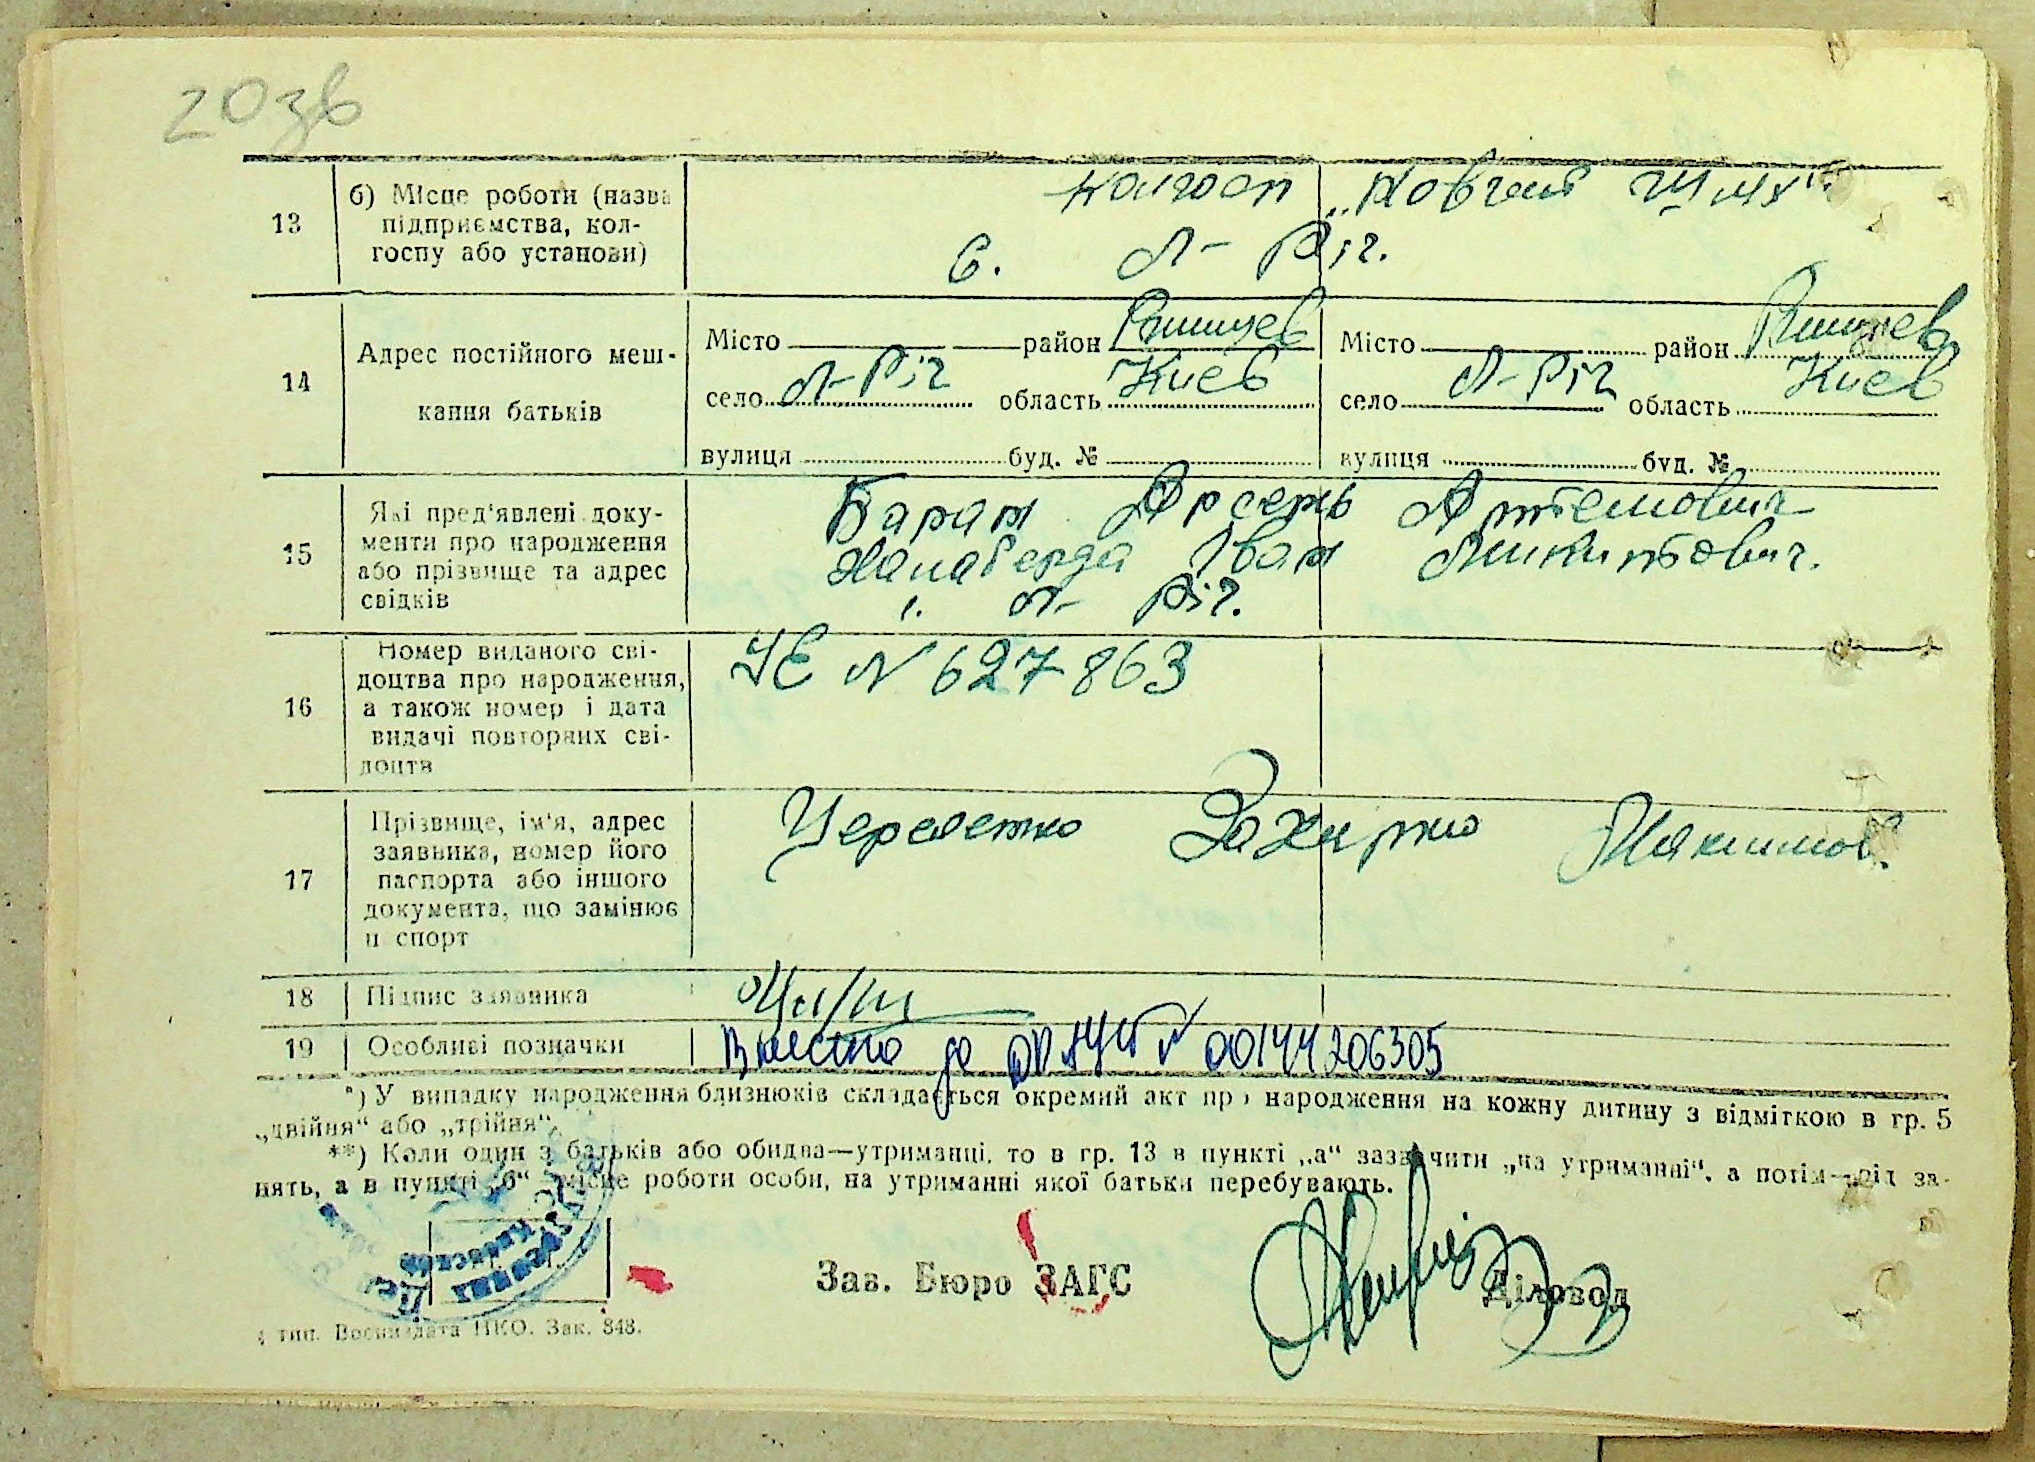 20зв
13
б) Місце роботи (назва
підприємства, кол-
госпу або установи)
колгосп „Новий Шлях“.
с. Л- Ріг.
14
Адрес постійного меш-
кання батьків
Місто район Ржищев Місто район Ржищев
село Л-Ріг область Киев село Л-Ріг область Киев
вулиця буд. № вулиця буд. №
15
Які пред'явлені доку-
менти про народження
або прізвище та адрес
свідків
Баран Арсень Артемович
Іван Микитович.
Л- Ріг.
16
Номер виданого сві-
доцтва про народження,
а також номер і дата
видачі повторних сві-
доцтв
УЕ N 627863
17
Прізвище, ім'я, адрес
заявника, номер його
паспорта або іншого
документа, що замінює
п спорт
Захарко Максимов.
18 Підпис заявника
19 Особливі позначки
Внесено до ДРАЦСГ № 00144206305
*) У випадку народження близнюків складається окремий акт про народження на кожну дитину з відміткою в гр. 5
„двійня“ або „трійня“.
**) Коли один з батьків або обидва—утриманці, то в гр. 13 в пункті „а“ зазначити „на утриманні“, а потім—рід за-
нять, а в пункті „б“ місце роботи особи, на утриманні якої батьки перебувають.
Зав. Бюро ЗАГС Діловод
4 тип. Воениздата НКО. Зак. 848.